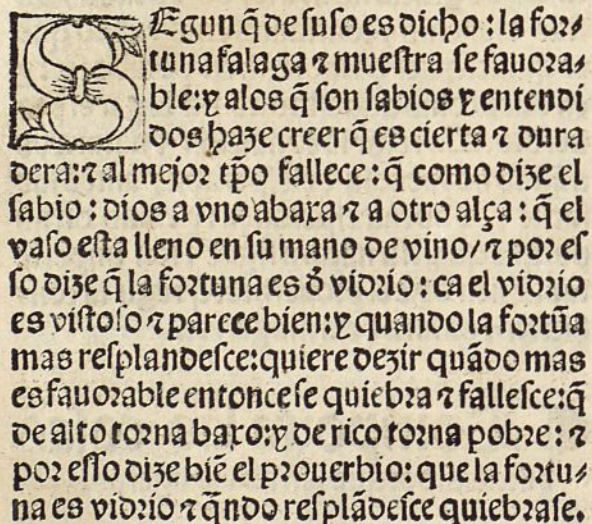 SEgun q̃ de ſuſo es dicho : la for⸗
tuna falaga ⁊ mueſtra ſe fauora⸗
ble:y alos q̃ ſon ſabios y entendi
dos haze creer q̃ es cierta ⁊ dura
dera:⁊ al mejor tp̃o fallece : q̃ como dize el
ſabio : dios a vno abaxa ⁊ a otro alça : q̃ el
vaſo eſta lleno en ſu mano de vino/ ⁊ por eſ
ſo dize q̃ la fortuna es d̓ vidrio : ca el vidrio
es viſtoſo ⁊ parece bien:y quando la fortũa
mas reſplandeſce:quiere dezir quãdo mas
es fauorable entonce ſe quiebra ⁊ falleſce:q̃
de alto torna baxo:y de rico torna pobre : ⁊
por eſſo dize biẽ el prouerbio: que la fortu⸗
na es vidrio ⁊ q̃ndo reſplãdeſce quiebraſe.